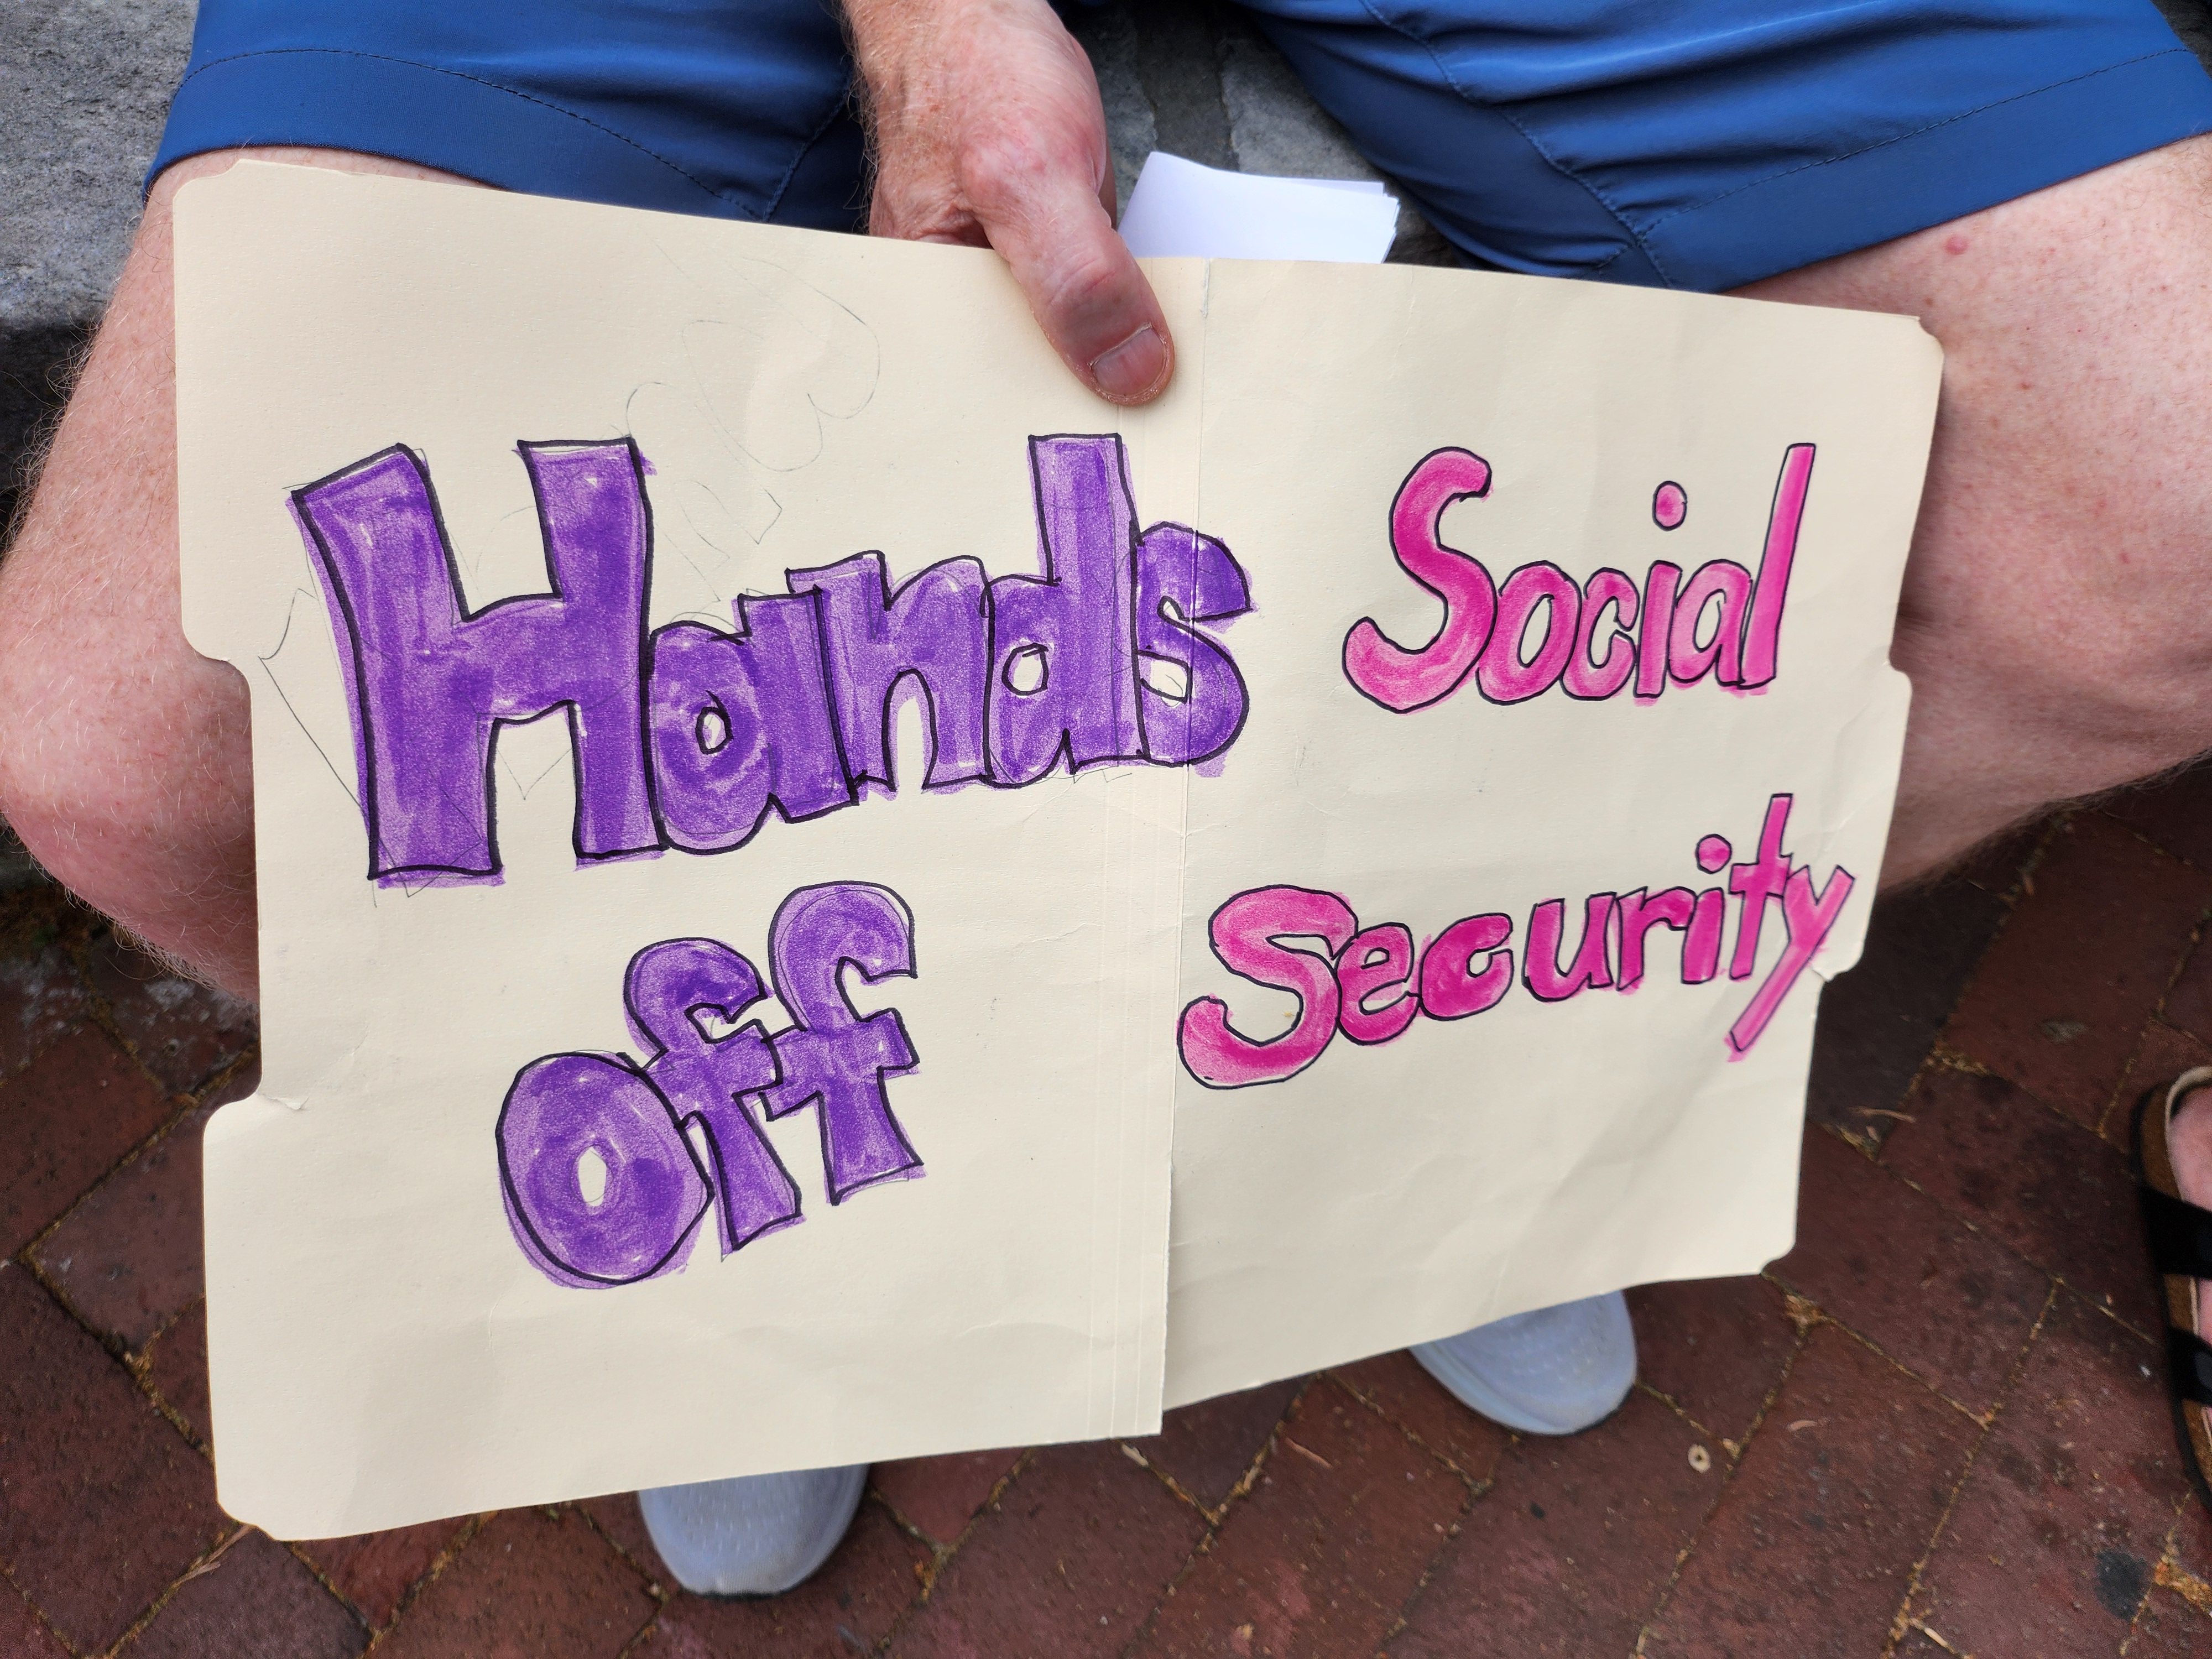 Hands
off
Social
Security